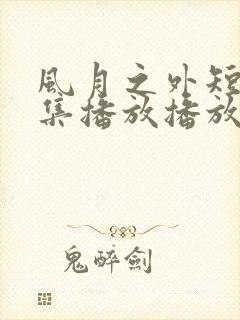 風月之外短
集播放播放
鬼醉劍